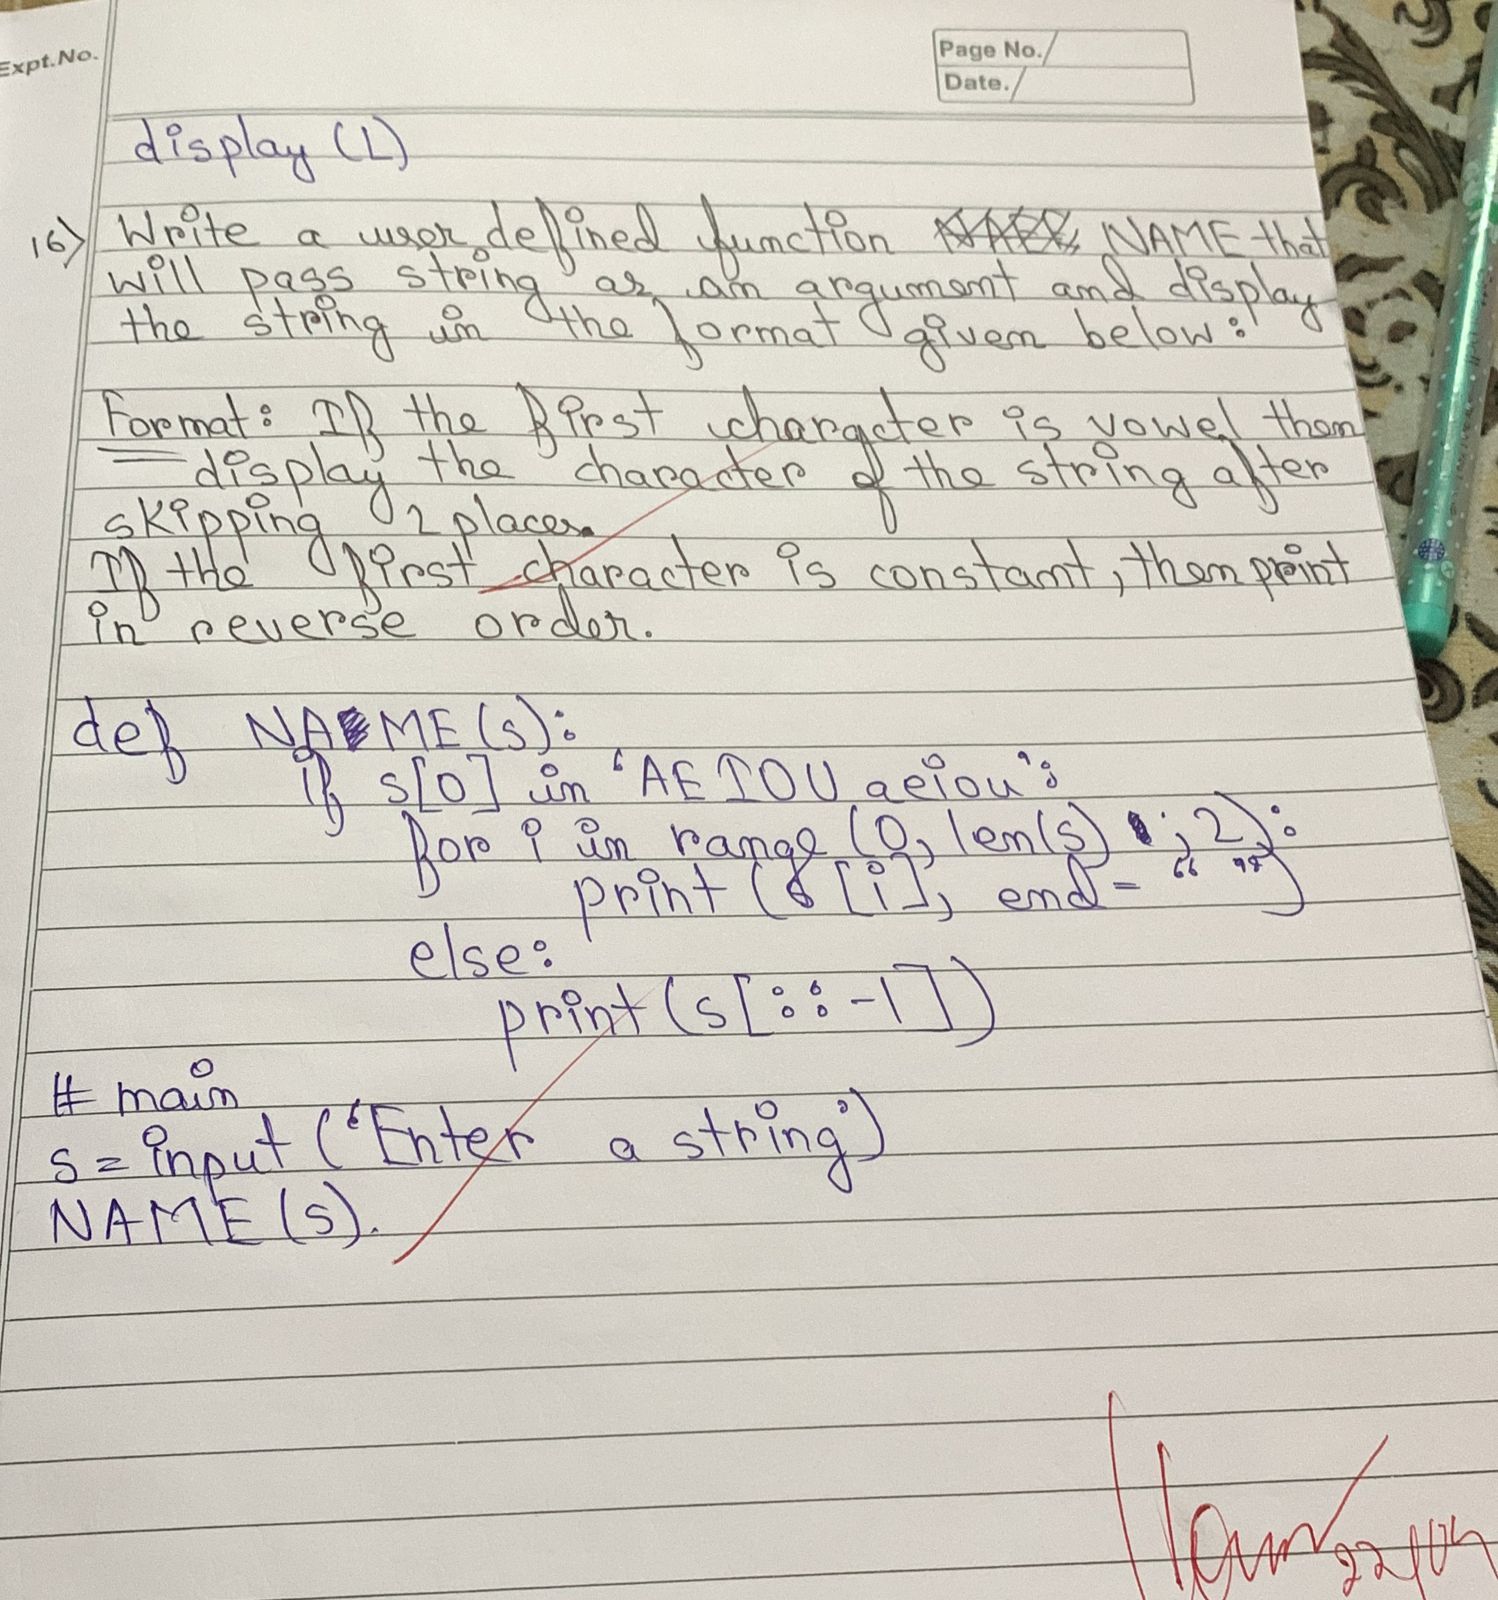 Expt.No.
Page No.
Date.
display (L)
16) Write a user defined function NAME that
will pass string as an argument and display
the string in the format given below:
Format: If the first character is vowel then
display the character of the string after
skipping 2 places.
If the first character is constant, then print
in reverse order.
def NAME(s):
if s[0] in 'AEIOUaeiou':
for i in range (0, len(s), 2):
print (s[i], end = " ")
else:
print (s[::-1])
# main
s = input ('Enter a string')
NAME (s).
22/04